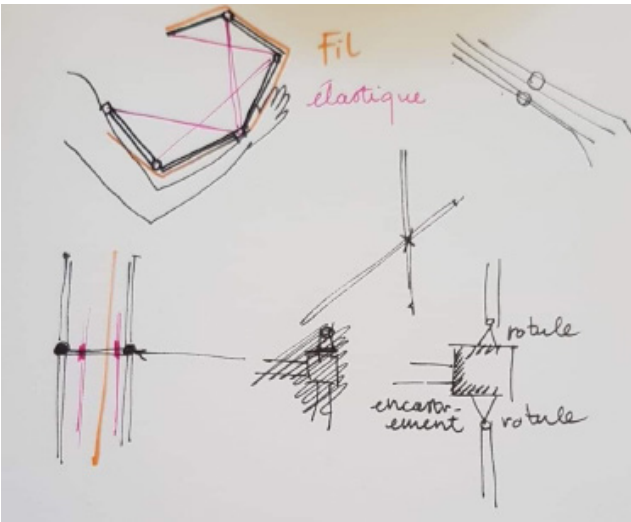 Fil
élastique
rotule
encastr-
ement
rotule